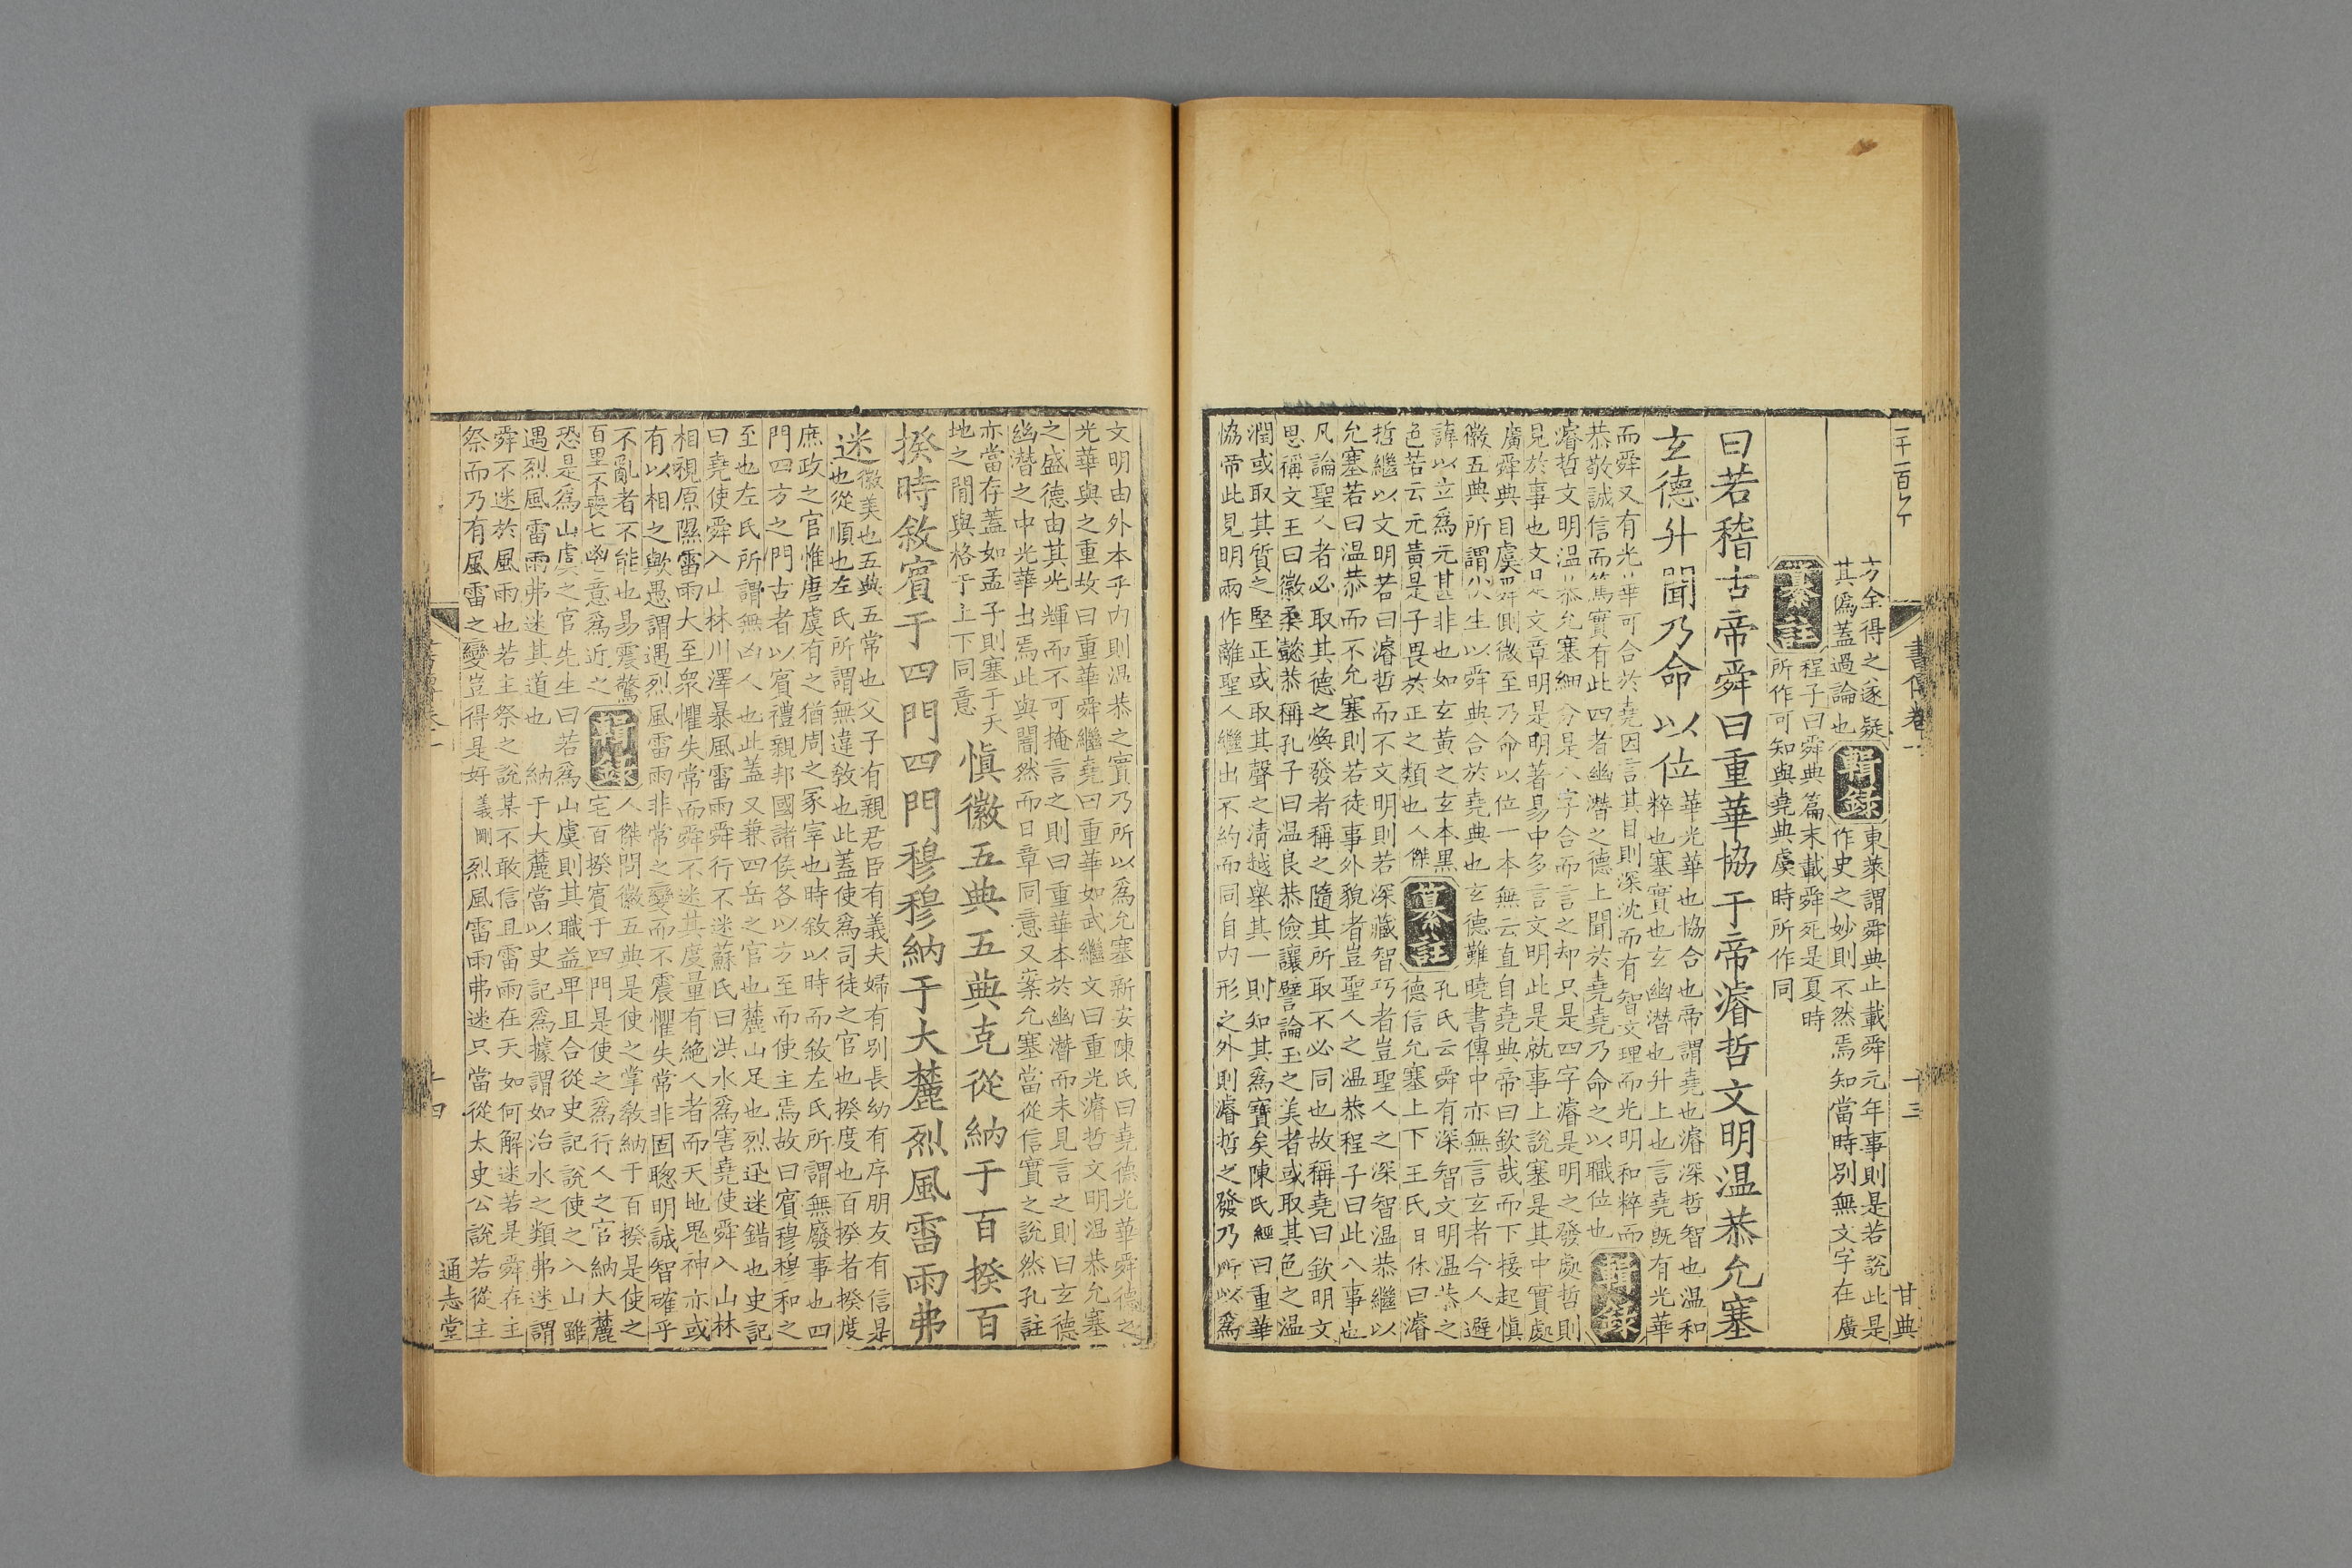 書傳卷一
十三
甘典
方全得之遂疑
其僞蓋過論也
輯錄
東萊謂舜典止載舜元年事則是若說此是
作史之妙則不然焉知當時別無文字在廣
纂註
程子曰舜典篇末載舜死是夏時
所作可知與堯典虞時所作同
曰若稽古帝舜曰重華協于帝濬哲文明温恭允塞
玄德升聞乃命以位
華光華也協合也帝謂堯也濬深哲智也温和
粹也塞實也玄幽潛也升上也言堯既有光華
而舜又有光華可合於堯因言其目則深沈而有智文理而光明和粹而
恭敬誠信而篤實有此四者幽潛之德上聞於堯堯乃命之以職位也
輯錄
濬哲文明温恭允塞細分是八字合而言之却只是四字濬是明之發處哲則
見於事也文是文章明是明著易中多言文明此是就事上說塞是其中實處
廣舜典自虞舜側微至乃命以位一本無云直自堯典帝曰欽哉而下接起愼
徽五典所謂伏生以舜典合於堯典也玄德難曉書傳中亦無言玄者今人避
諱以玄爲元甚非也如玄黃之玄本黑
色若云元黃是子畏於正之類也人傑
纂註
孔氏云舜有深智文明温恭之
德信允塞上下王氏日休曰濬
哲繼以文明若曰濬哲而不文明則若深藏智巧者豈聖人之深智温恭繼以
允塞若曰温恭而不允塞則若徒事外貌者豈聖人之温恭程子曰此八事也
凡論聖人者必取其德之煥發者稱之隨其所取不必同也故稱堯曰欽明文
思稱文王曰徽柔懿恭稱孔子曰温良恭儉讓譬論玉之美者或取其色之温
潤或取其質之堅正或取其聲之清越舉其一則知其爲寶矣陳氏經曰重華
協帝此見明兩作離聖人繼出不約而同自內形之外則濬哲之發乃所以爲
文明由外本乎內則温恭之實乃所以爲允塞新安陳氏曰堯德光華舜德之
光華與之重故曰重華舜繼堯曰重華如武繼文曰重光濬哲文明温恭允塞
之盛德由其光輝而不可掩言之則曰重華本於幽潛而未見言之則曰玄德
幽潛之中光華出焉此與闇然而日章同意又案允塞當從信實之說然孔註
亦當存蓋如孟子則塞于天
地之閒與格于上下同意
愼徽五典五典克從納于百揆百
揆時敘賓于四門四門穆穆納于大麓烈風雷雨弗
迷
徽美也五典五常也父子有親君臣有義夫婦有別長幼有序朋友有信是
也從順也左氏所謂無違敎也此蓋使爲司徒之官也揆度也百揆者揆度
庶政之官惟唐虞有之猶周之冢宰也時敘以時而敘左氏所謂無廢事也四
門四方之門古者以賓禮親邦國諸侯各以方至而使主焉故曰賓穆穆和之
至也左氏所謂無凶人也此蓋又兼四岳之官也麓山足也烈迅迷錯也史記
曰堯使舜入山林川澤暴風雷雨舜行不迷蘇氏曰洪水爲害堯使舜入山林
相視原隰雷雨大至衆懼失常而舜不迷其度量有絶人者而天地鬼神亦或
有以相之歟愚謂遇烈風雷雨非常之變而不震懼失常非固聰明誠智確乎
不亂者不能也易震驚
百里不喪匕鬯意爲近之
輯錄
人傑問徽五典是使之掌敎納于百揆是使之
宅百揆賓于四門是使之爲行人之官納大麓
恐是爲山虞之官先生曰若爲山虞則其職益卑且合從史記說使之入山雖
遇烈風雷雨弗迷其道也 納于大麓當以史記爲據謂如治水之類弗迷謂
舜不迷於風雨也若主祭之說某不敢信且雷雨在天如何解迷若是舜在主
祭而乃有風雷之變豈得是好義剛烈風雷雨弗迷只當從太史公說若從主
十四
通志堂